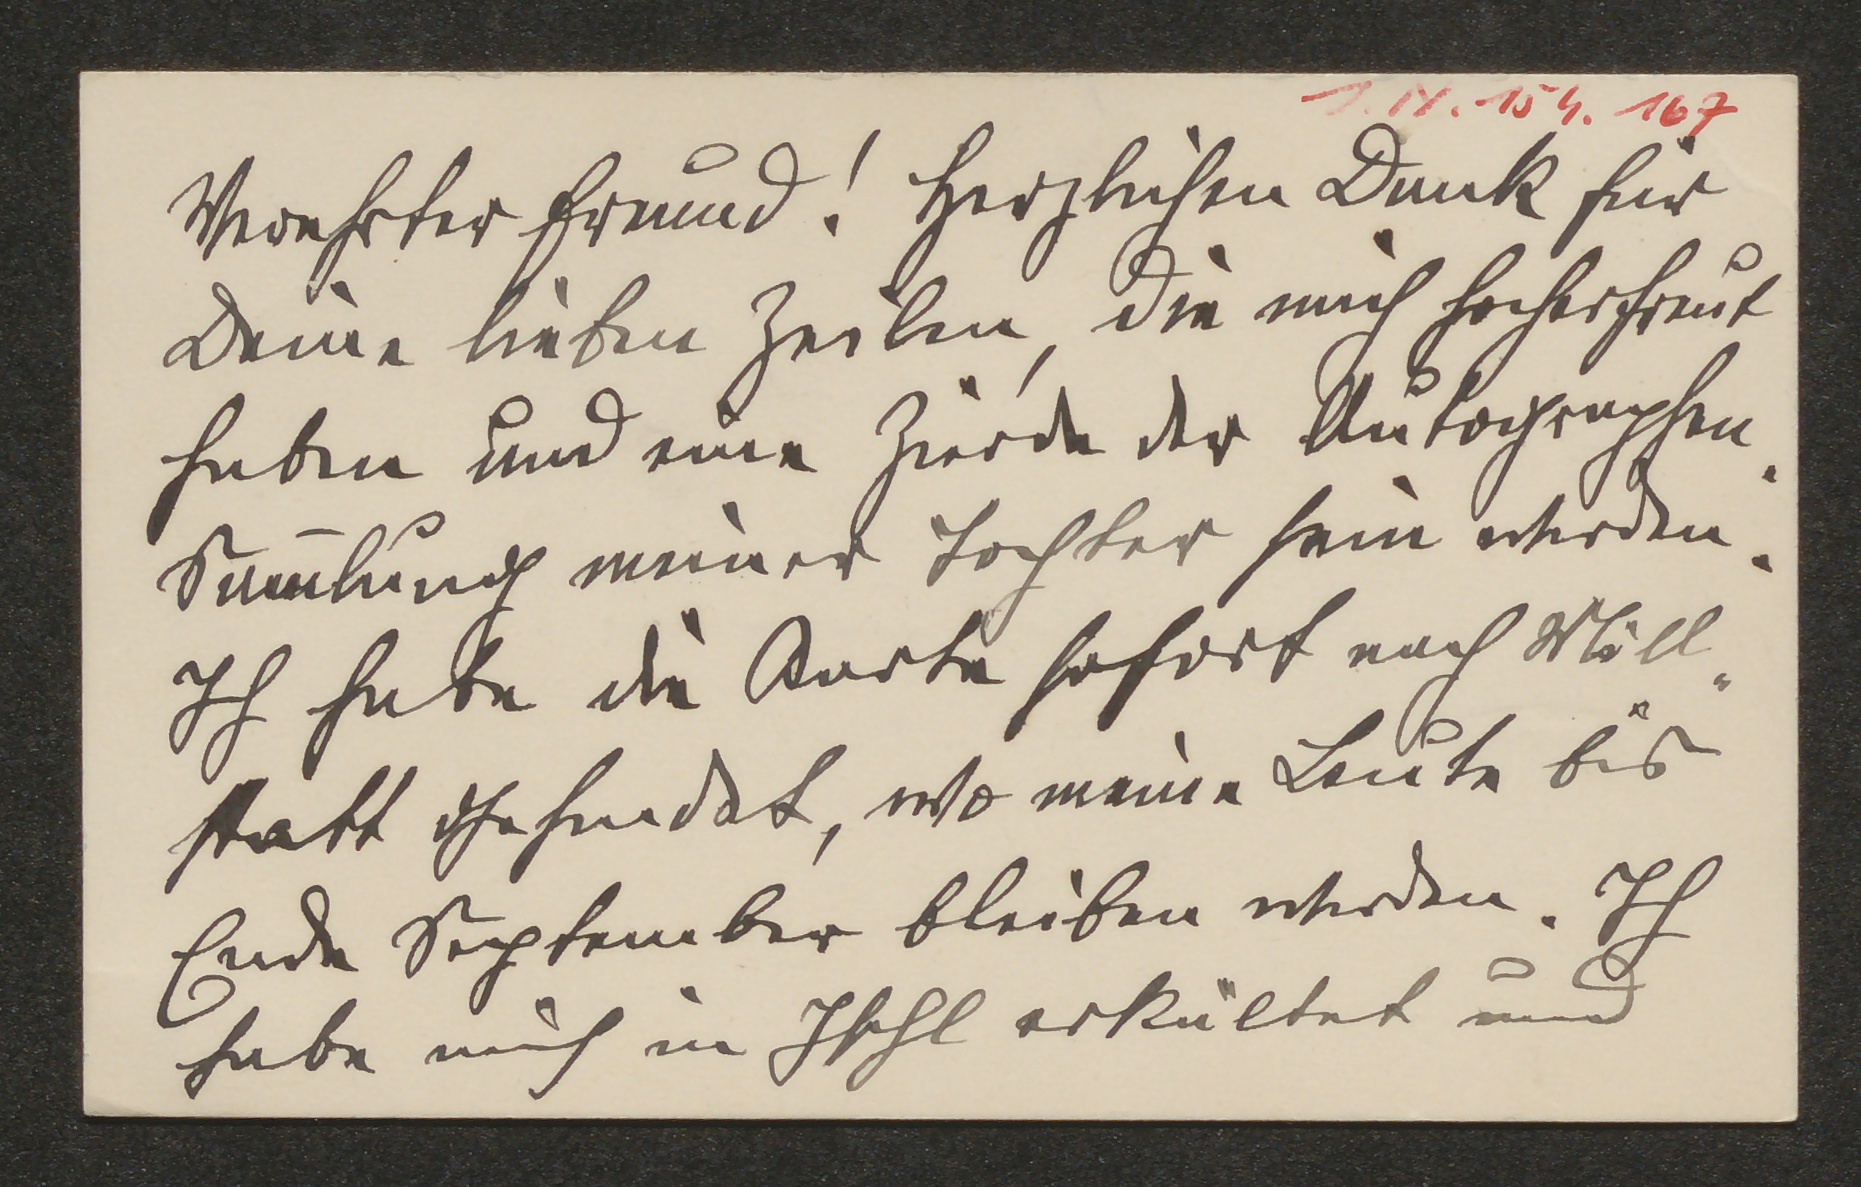 1. IX. 154. 167
Verehrter Freund! Herzlichen Dank für
Deine lieben Zeilen, die mich hocherfreut
haben und eine Zierde der Autographen-
Sam̄lung meiner Tochter sein werden.
Ich habe die Karte sofort nach Mill-
statt gesendet, wo meine Leute bis
Ende September bleiben werden. Ich
habe mich in Ischl erkältet und